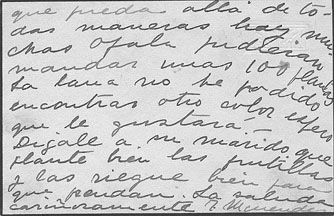 que pueda allá de to
das maneras hay mu
chas ojala pudieran
mandar unas 100 plantas
La lana no he podido
encontrar otro color espero
que le gustara
Digale a su marido que
plante bien las frutillas
y las riegue bien para
que prendan. La saluda
cariñosamente